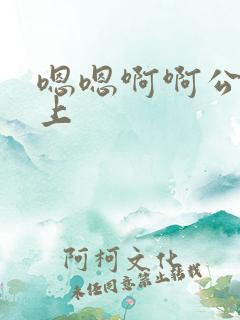 嗯嗯啊啊公
上
阿柯文化
未经同意禁止转载